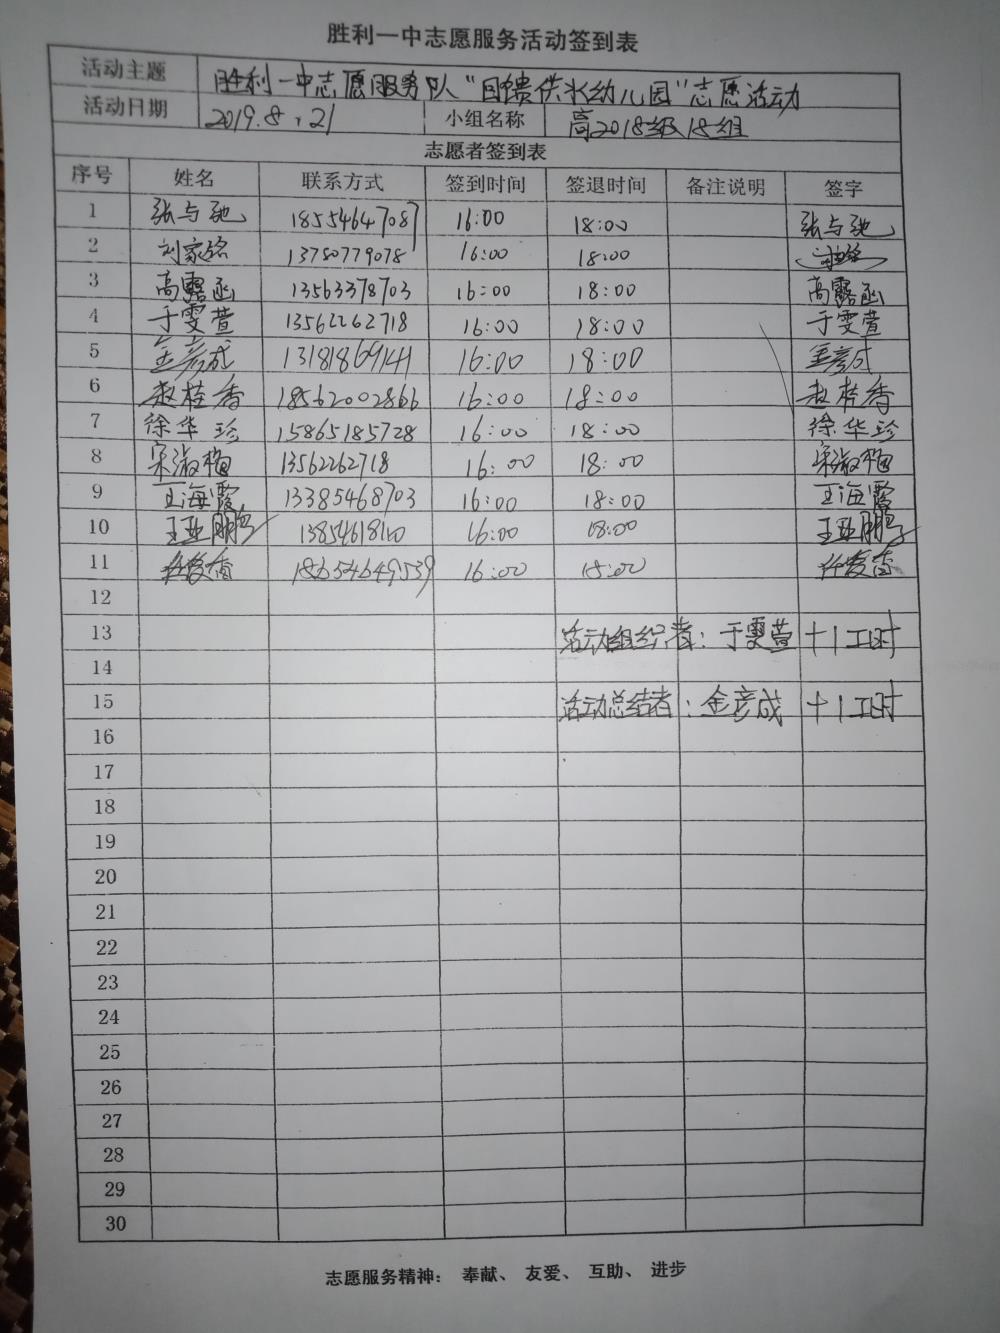 胜利一中志愿服务活动签到表
活动主题 胜利一中志愿服务队“回馈供水幼儿园”志愿活动
活动日期 2019.8.21 小组名称 高2018级18组
志愿者签到表
序号 姓名 联系方式 签到时间 签退时间 备注说明 签字
1 张与驰 18554647087 16:00 18:00 张与驰
2 刘家铭 13780779078 16:00 18:00
3 高露函 13563378703 16:00 18:00 高露函
4 于雯萱 13562262718 16:00 18:00 于雯萱
5 金彦成 13181869141 16:00 18:00 金彦成
6 赵桂香 18562002866 16:00 18:00 赵桂香
7 徐华珍 15865185728 16:00 18:00 徐华珍
8 宋淑梅 13562262718 16:00 18:00 宋淑梅
9 王海霞 13385468703 16:00 18:00 王海霞
10 王亚鹏 16:00 18:00 王亚鹏
11 18654649539 16:00 18:00
12
13 活动组织者：于雯萱 +1工时
14
15 活动总结者：金彦成 +1工时
16
17
18
19
20
21
22
23
24
25
26
27
28
29
30
志愿服务精神： 奉献、 友爱、 互助、 进步